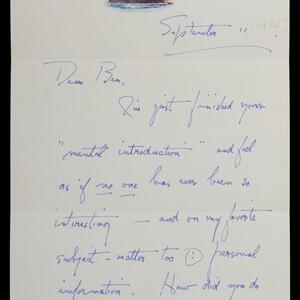 September " [1954]
Dear Ben,
I've just finished your
"mental introduction" and feel
as if no one has ever been so
interesting — and on my favorite
subject - matter too (:) personal
information. How did you do